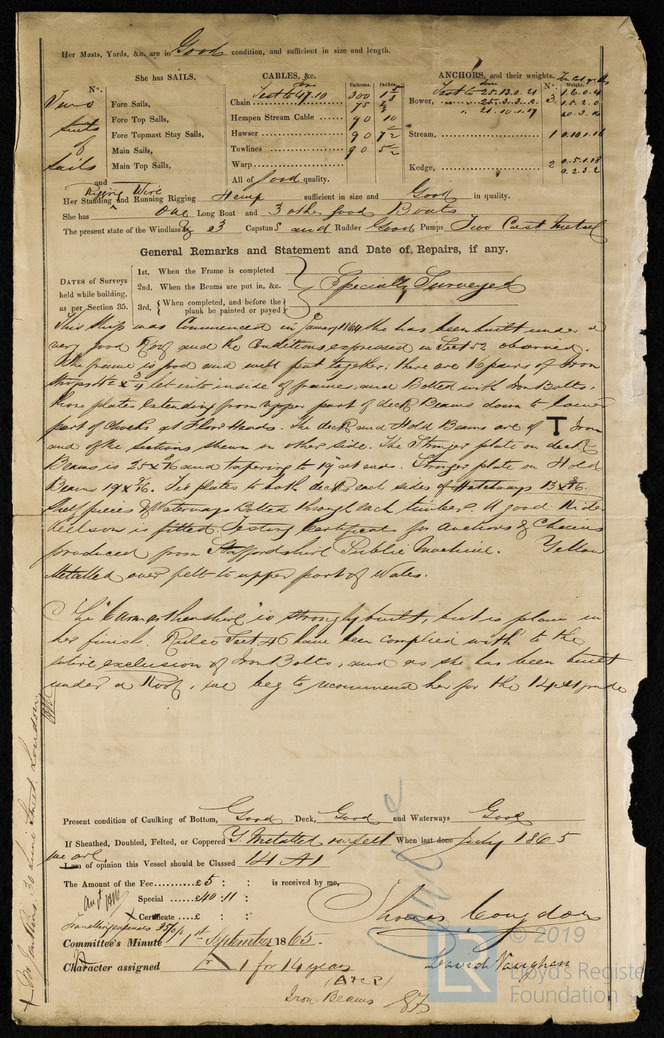 Her Masts, Yards, &c. are in Good condition, and sufficient in size and length.
She has SAILS. CABLES, &c. Fathoms. Inches. ANCHORS, and their weights.
No. Two suits of sails and
Fore Sails,
Fore Top Sails,
Fore Topmast Stay Sails,
Main Sails,
Main Top Sails,
Chain 300
75
Hempen Stream Cable 90 10
Hawser 90 7½
Towlines 90 5½
Warp
All of Good quality.
Bower, 3
Stream, 1
Kedge, 2
Her Standing Rigging Wire and Running Rigging Hemp sufficient in size and Good in quality.
She has One Long Boat and 3 other good Boats
The present state of the Windlass is Capstans and Rudder Good Pumps Two Cast Metal
General Remarks and Statement and Date of Repairs, if any.
DATES of Surveys held while building, as per Section 35.
1st. When the Frame is completed
2nd. When the Beams are put in, &c.
3rd, When completed, and before the plank be painted or payed
Specially Surveyed
This Ship was Commenced in January 1864 she has been built under a
very good Roof and the Conditions expressed in Sect 52 observed.
The frame is good and well put together; there are 16 pairs of Iron
straps 4½ x ¾ let into inside of frames, and Bolted with Iron Bolts,
these plates Extending from upper part of deck Beams down to lower
part of Chocks at Floor Heads. The deck and Hold Beams are of T Iron
and of the sections shewn on other side. The Stringer plate on deck
Beams is 25 x and tapering to 19 at ends. Stringer plate on Hold
Beams 19 x. Tie plates to both decks each sides of Hatchways 13 x
Shelf pieces & Waterways Bolted through each timber. A good Rider
Keelson is fitted. Testing Certificate for Anchors & Chains
produced from Staffordshire Public Machine. Yellow
Metalled over felt to upper part of Wales.
The "Carmarthenshire" is strongly built, but is plain in
her finish. Rules Sect 46 have been complied with to the
entire exclusion of Iron Bolts, and as she has been built
under a Roof, we beg to recommend her for the 14 A1 grade
Present condition of Caulking of Bottom, Good Deck, Good and Waterways Good
If Sheathed, Doubled, Felted, or Coppered Y Metalled on felt When last done July 1865
we are
I am of opinion this Vessel should be Classed 14 A1
The Amount of the Fee £5 : : is received by me,
Special £40 : 11 :
Certificate £ : :
Travelling expenses
Thomas Congdon
David Vaughan
Committee's Minute 1st September 1865.
Character assigned 1 for 14 years
Iron Beams
30 Lime Street London
© 2019
Lloyd's Register
Foundation
LR